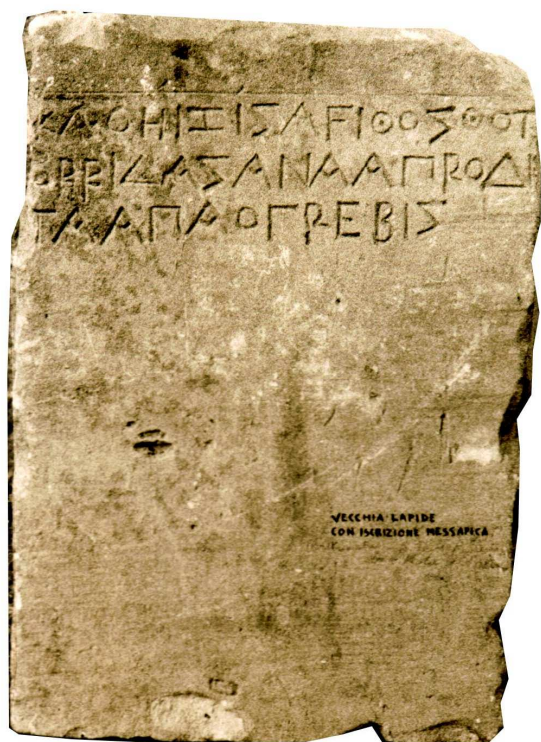 ΚΛΟΗΙΖΙΣΑϜΙΘΟΣΘΟΤ
ΟΡΡΙΔΑΣΑΝΑΑΠΡΟΔΙ
ΤΑΑΠΑΟΓΡΕΒΙΣ
VECCHIA LAPIDE
CON ISCRIZIONE MESSAPICA